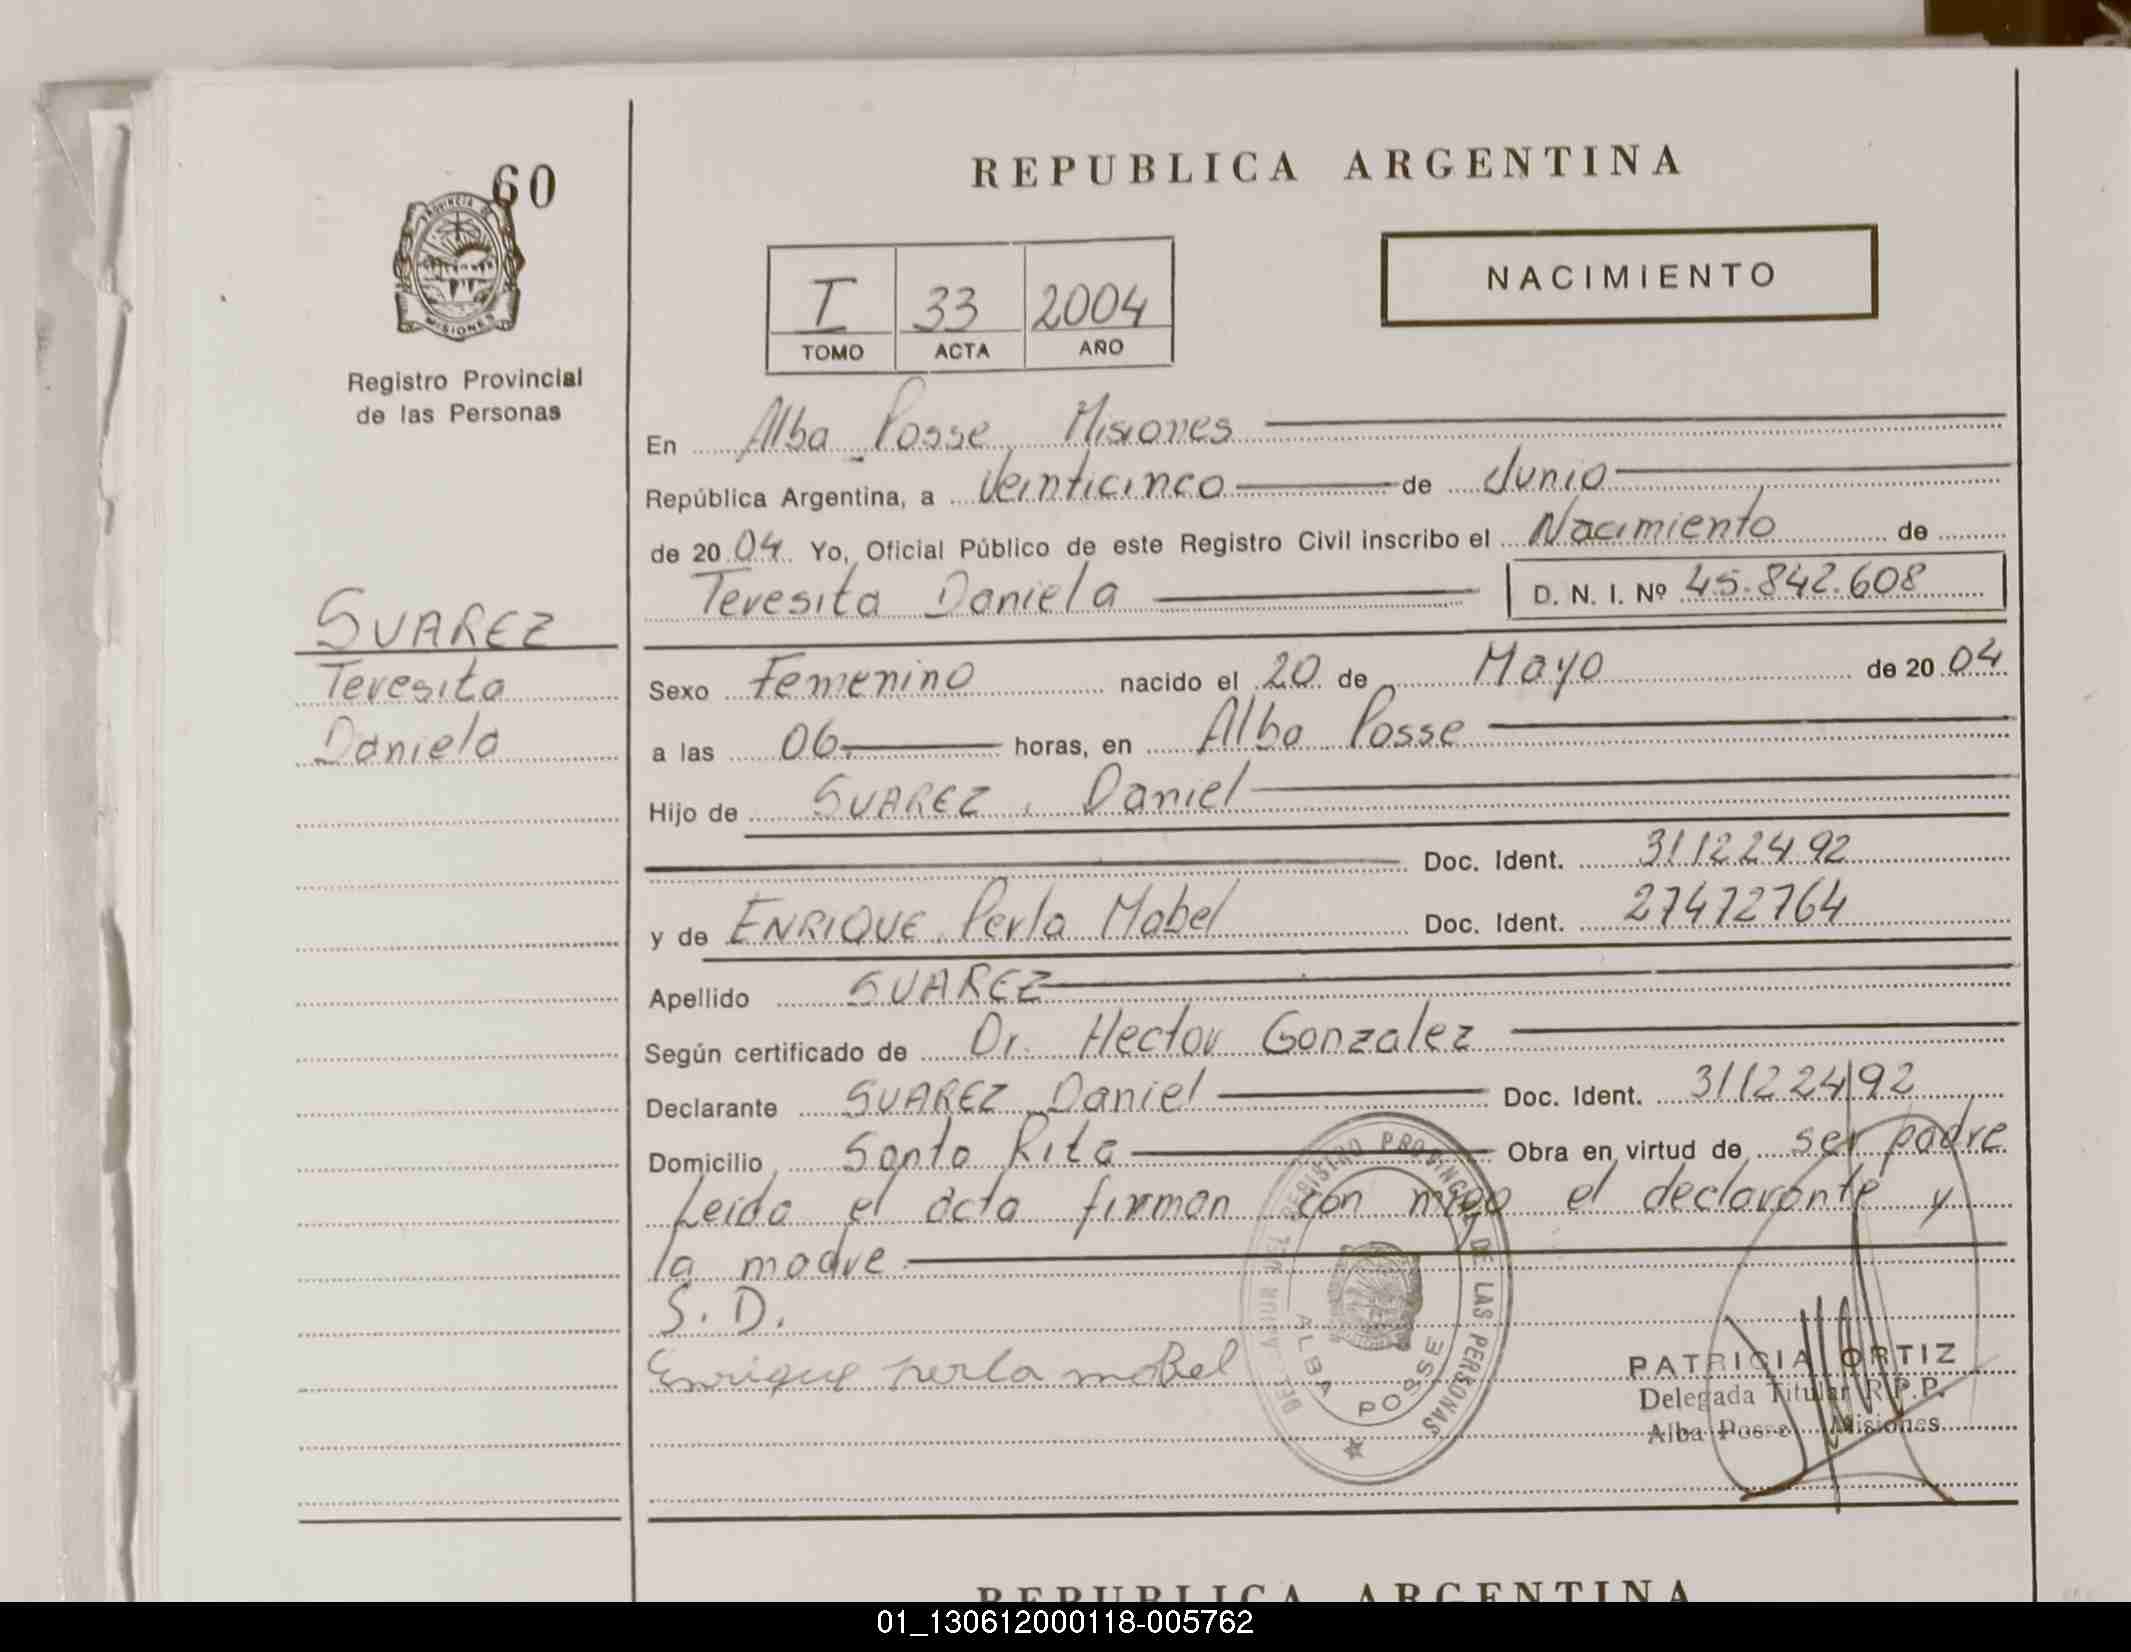 60
PROVINCIA DE
MISIONES
Registro Provincial
de las Personas
REPUBLICA ARGENTINA
NACIMIENTO
I 33 2004
TOMO ACTA AÑO
En Alba Posse Misiones
República Argentina, a Veinticinco de Junio
de 2004 Yo, Oficial Público de este Registro Civil inscribo el Nacimiento de
Teresita Daniela D. N. I. Nº 45.842.608
SUAREZ
Teresita
Daniela
Sexo Femenino nacido el 20 de Mayo de 2004
a las 06. horas, en Alba Posse
Hijo de SUAREZ, Daniel
Doc. Ident. 31122492
y de ENRIQUE Perla Mabel Doc. Ident. 27472764
Apellido SUAREZ
Según certificado de Dr. Hector Gonzalez
Declarante SUAREZ Daniel Doc. Ident. 31122492
Domicilio Santa Rita Obra en virtud de ser padre
Leida el acta firman con migo el declarante y
la madre
S. D.
Enrique perla mabel
REGISTRO PROVINCIAL DE LAS PERSONAS
ALBA POSSE
PATRICIA ORTIZ
Delegada Titular R.P.P.
Alba Posse Misiones
REPUBLICA ARGENTINA
01_130612000118-005762